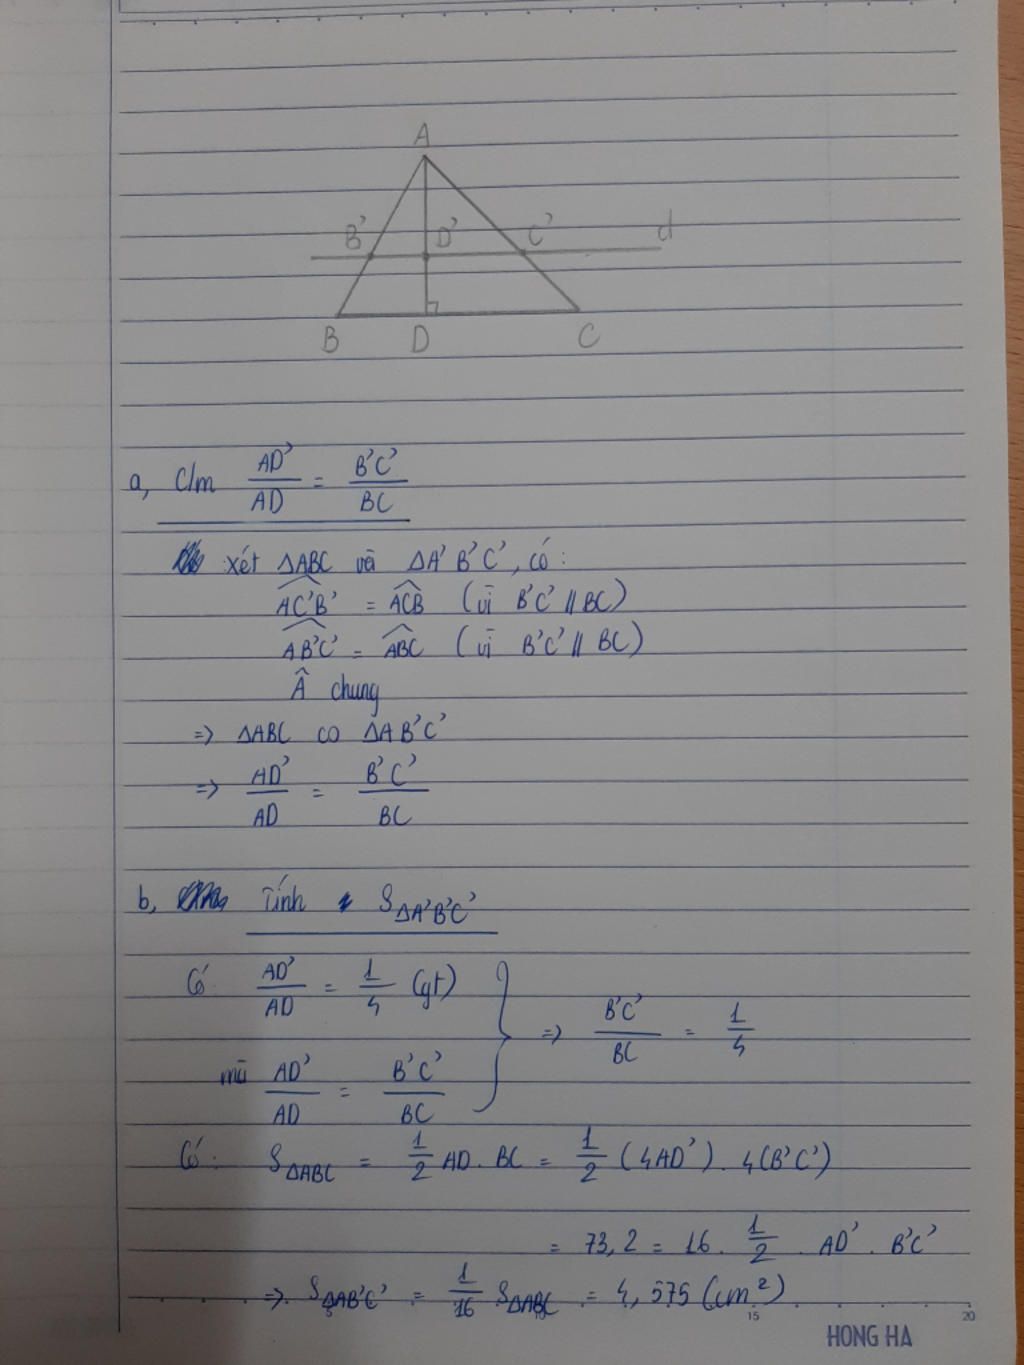 A
B' D' C' d
B D C
a, C/m AD'/AD = B'C'/BC
xét ΔABC và ΔA'B'C', có:
AC'B' = ACB (vì B'C' // BC)
AB'C' = ABC (vì B'C' // BC)
Â chung
=> ΔABC ∽ ΔAB'C'
=> AD'/AD = B'C'/BC
b, Tính S ΔA'B'C'
Có AD'/AD = 1/4 (gt)
=> B'C'/BC = 1/4
mà AD'/AD = B'C'/BC
Có: S ΔABC = 1/2 AD . BC = 1/2 (4AD') . 4(B'C')
= 73,2 = 16 . 1/2 . AD' . B'C'
=> S ΔAB'C' = 1/16 S ΔABC = 4,575 (cm²)
5 10 15 20
HONG HA